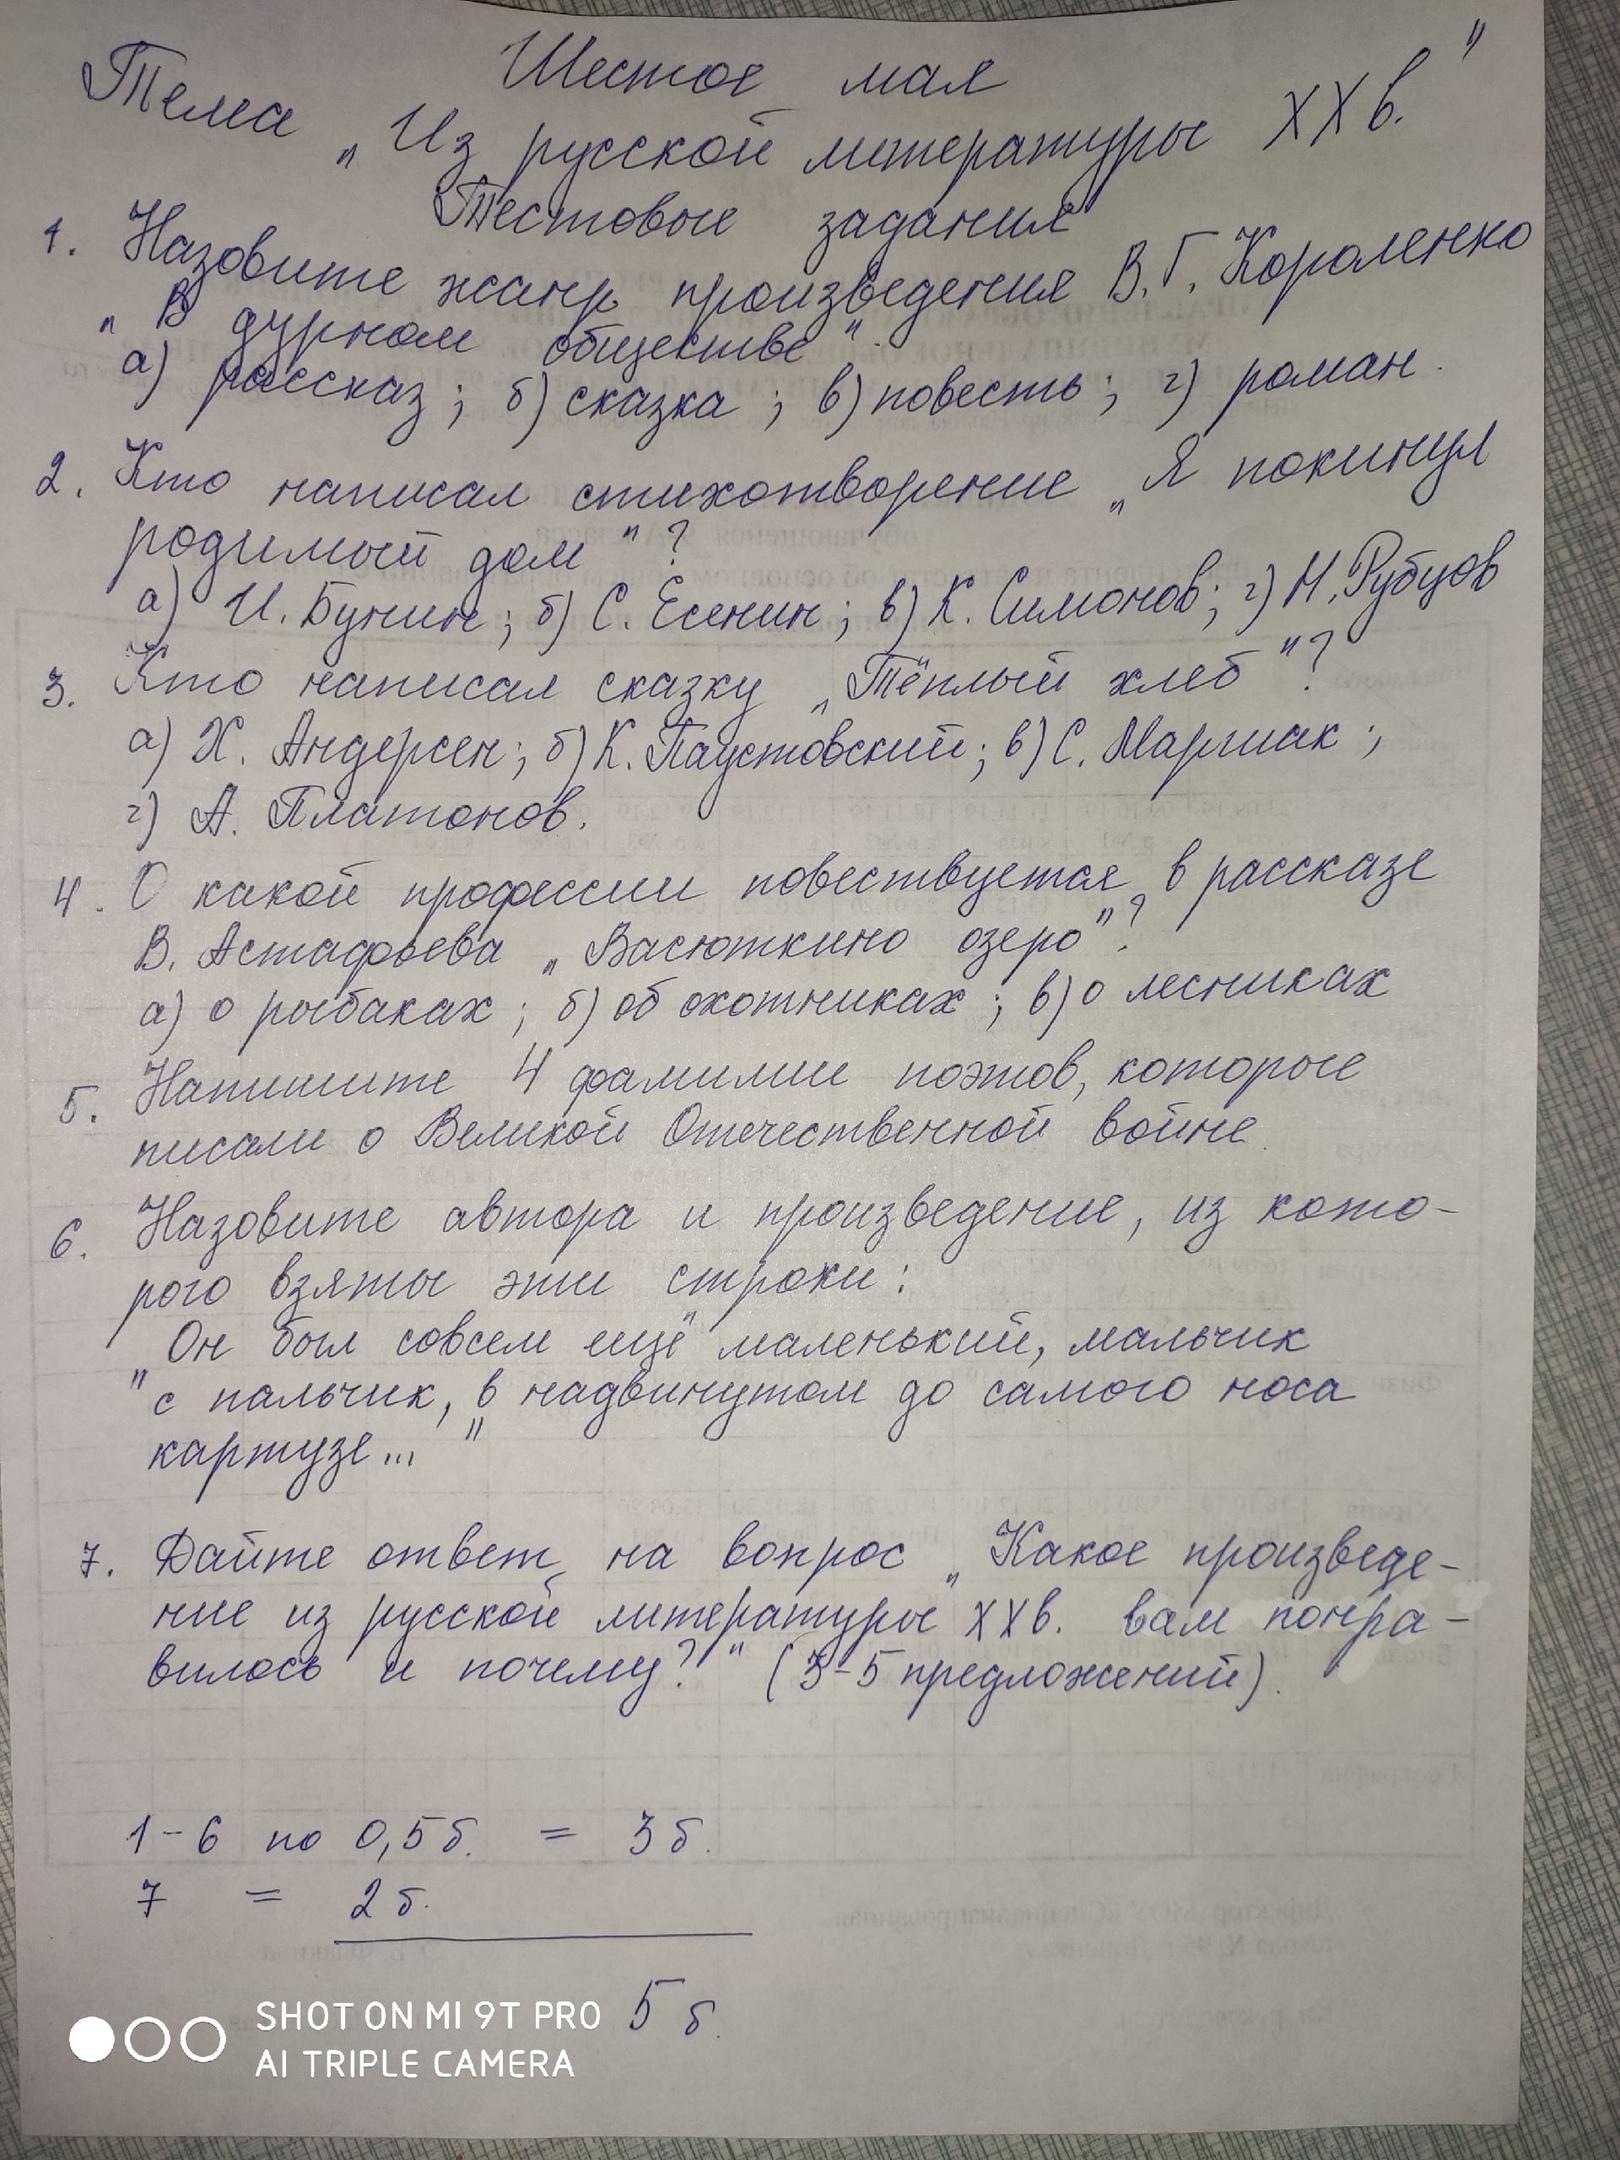 Шестое мая
Тема „Из русской литературы XX в."
Тестовые задания
1. Назовите жанр произведения В.Г. Короленко
„В дурном обществе".
а) рассказ; б) сказка; в) повесть; г) роман.
2. Кто написал стихотворение „Я покинул
родимый дом"?
а) И. Бунин; б) С. Есенин; в) К. Симонов; г) Н. Рубцов
3. Кто написал сказку „Тёплый хлеб"?
а) Х. Андерсен; б) К. Паустовский; в) С. Маршак;
г) А. Платонов.
4. О какой профессии повествуется в рассказе
В. Астафьева „Васюткино озеро"?
а) о рыбаках; б) об охотниках; в) о лесниках
5. Напишите 4 фамилии поэтов, которые
писали о Великой Отечественной войне.
6. Назовите автора и произведение, из кото-
рого взяты эти строки:
"Он был совсем ещё маленький, мальчик
с пальчик, в надвинутом до самого носа
картузе..."
7. Дайте ответ на вопрос „Какое произведе-
ние из русской литературы XX в. вам понра-
вилось и почему?" (3-5 предложений).
1-6 по 0,5 б. = 3 б.
7 = 2 б.
5 б.
SHOT ON MI 9T PRO
AI TRIPLE CAMERA